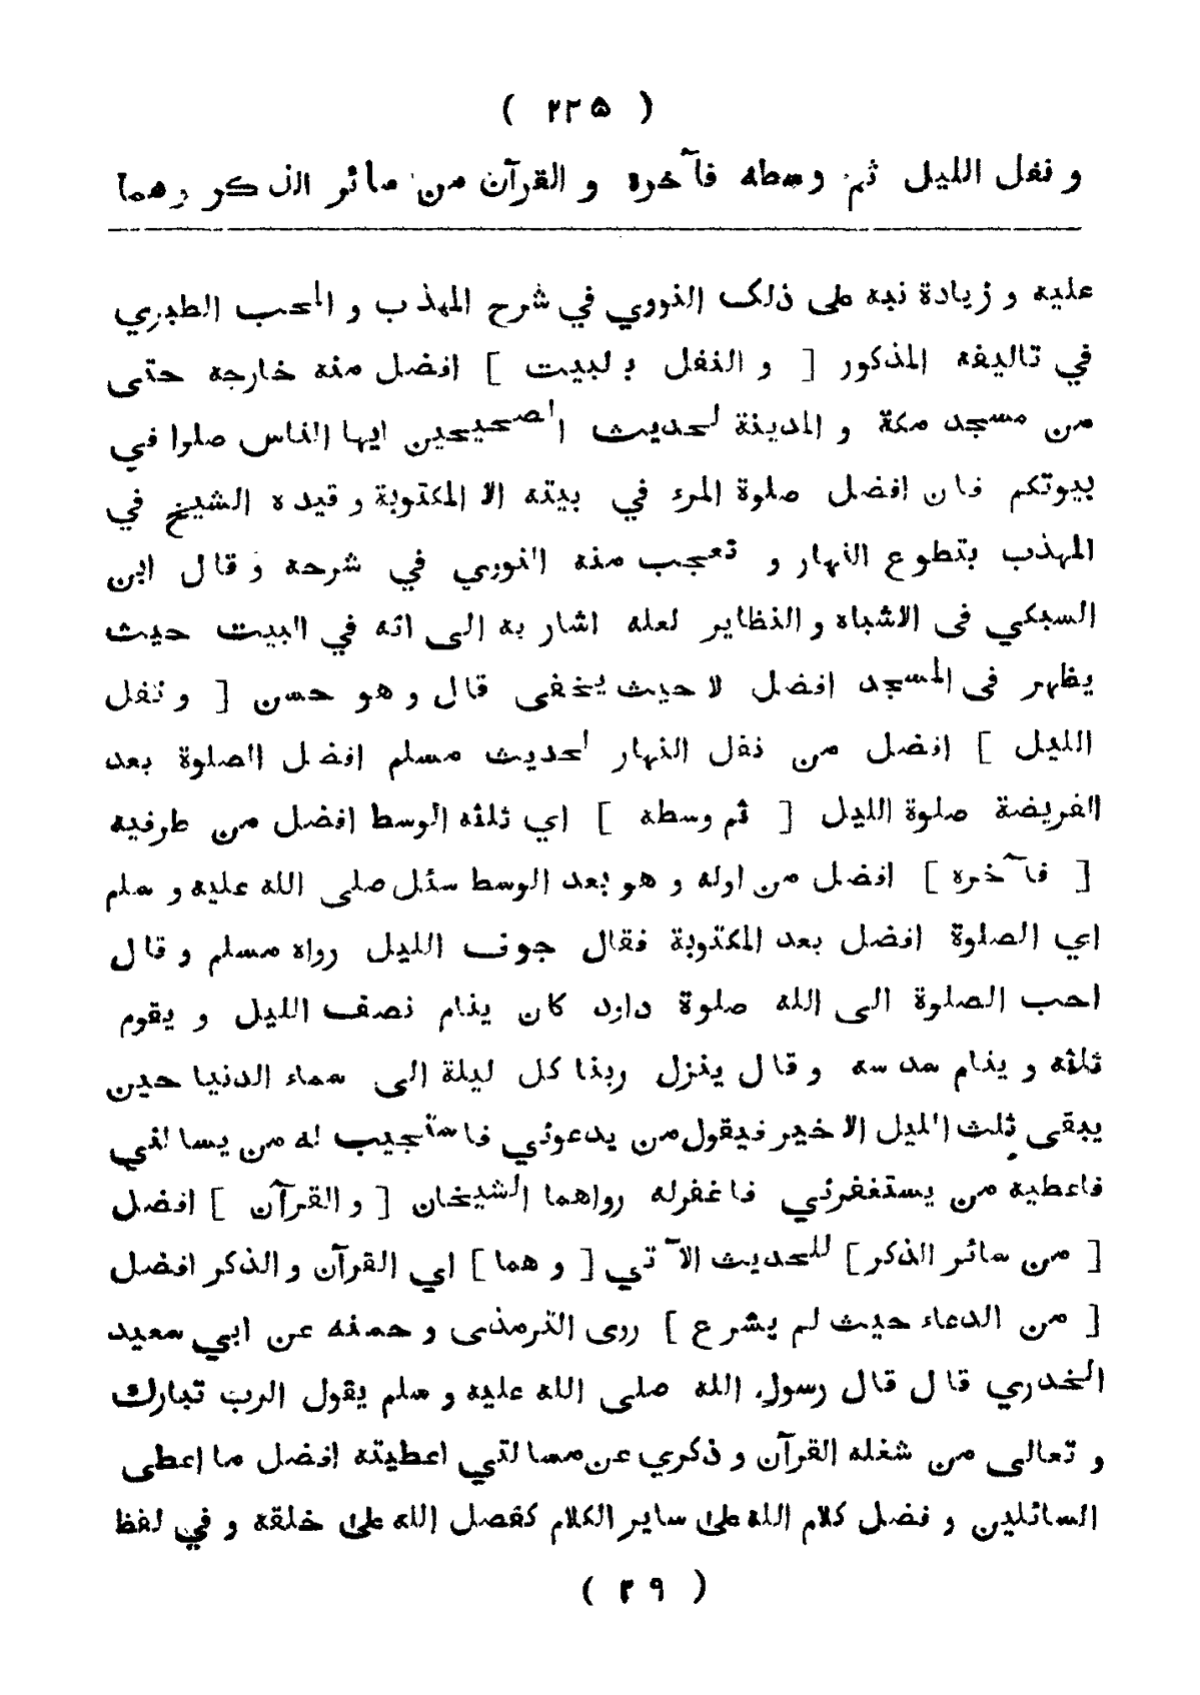 ( ٢٢٥ )
و نفل الليل ثم وسطه فآخره و القرآن من سائر الذكر وهما
عليه و زيادة نبه على ذلك النووي في شرح المهذب و المحب الطبري
في تاليفه المذكور [ و النفل بالبيت ] افضل منه خارجه حتى
من مسجد مكة و المدينة لحديث الصحيحين ايها الناس صلوا في
بيوتكم فان افضل صلوة المرء في بيته الا المكتوبة و قيده الشيخ في
المهذب بتطوع النهار و تعجب منه النوري في شرحه و قال ابن
السبكي فى الاشباه و النظاير لعله اشار به إلى انه في البيت حيث
يظهر فى المسجد افضل لا حيث يخفى قال و هو حسن [ و نفل
الليل ] افضل من نفل النهار لحديث مسلم افضل الصلوة بعد
الفريضة صلوة الليل [ ثم وسطه ] اي ثلثه الوسط افضل من طرفيه
[ فآخره ] افضل من اوله و هو بعد الوسط سئل صلى الله عليه و سلم
اي الصلوة افضل بعد المكتوبة فقال جوف الليل رواه مسلم و قال
احب الصلوة الى الله صلوة داود كان ينام نصف الليل و يقوم
ثلثه و ينام سدسه و قال ينزل ربنا كل ليلة الى سماء الدنيا حين
يبقى ثلث الليل الاخير فيقول من يدعوني فاستجيب له من يسالني
فاعطيه من يستغفرني فاغفرله رواهما الشيخان [ و القرآن ] افضل
[ من سائر الذكر ] للحديث الآتي [ و هما ] اي القرآن و الذكر افضل
[ من الدعاء حيث لم يشرع ] روى الترمذى و حسنه عن ابي سعيد
الخدري قال قال رسول الله صلى الله عليه و سلم يقول الرب تبارك
و تعالى من شغله القرآن و ذكري عن مسالتي اعطيته افضل ما اعطى
السائلين و فضل كلام الله على ساير الكلام كفصل الله على خلقه و في لفظ
( ٢٩ )